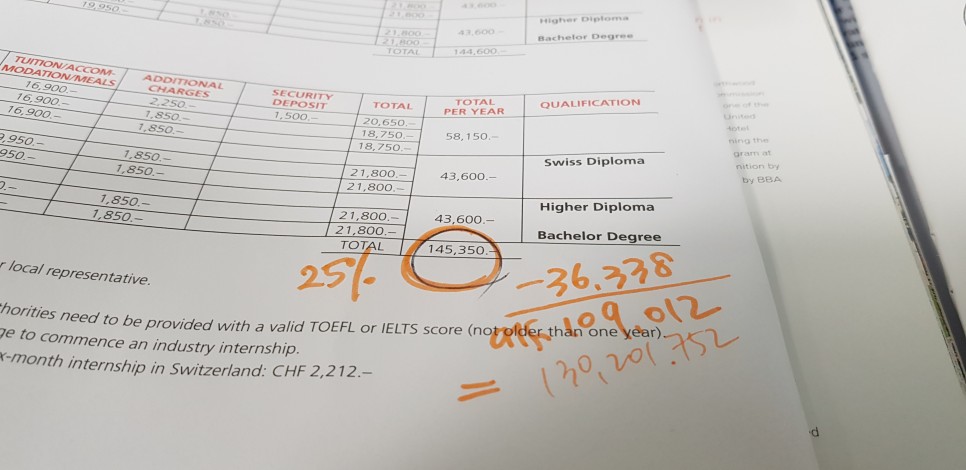 19,950.-
1,850.-
1,850.-
21,800.-
21,800.-
43,600.-
Higher Diploma
21,800.-
21,800.-
43,600.-
Bachelor Degree
TOTAL
144,600.-
TUITION/ACCOM-
MODATION/MEALS
ADDITIONAL
CHARGES
SECURITY
DEPOSIT
TOTAL
TOTAL
PER YEAR
QUALIFICATION
16,900.-
2,250.-
1,500.-
20,650.-
16,900.-
1,850.-
18,750.-
58,150.-
16,900.-
1,850.-
18,750.-
Swiss Diploma
,950.-
1,850.-
21,800.-
43,600.-
950.-
1,850.-
21,800.-
Higher Diploma
1,850.-
21,800.-
43,600.-
1,850.-
21,800.-
Bachelor Degree
TOTAL
145,350.-
25%
-36,338
109,012
= 130,201.752
local representative.
horities need to be provided with a valid TOEFL or IELTS score (not older than one year).
ge to commence an industry internship.
x-month internship in Switzerland: CHF 2,212.–
one of the
United
Hotel
ning the
gram at
nition by
by BBA
d